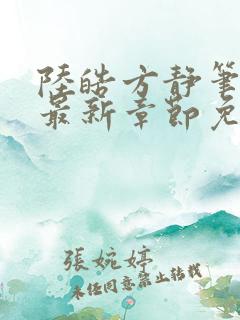 陸皓方靜筆
最新章節免
張婉婷
未经同意禁止转载